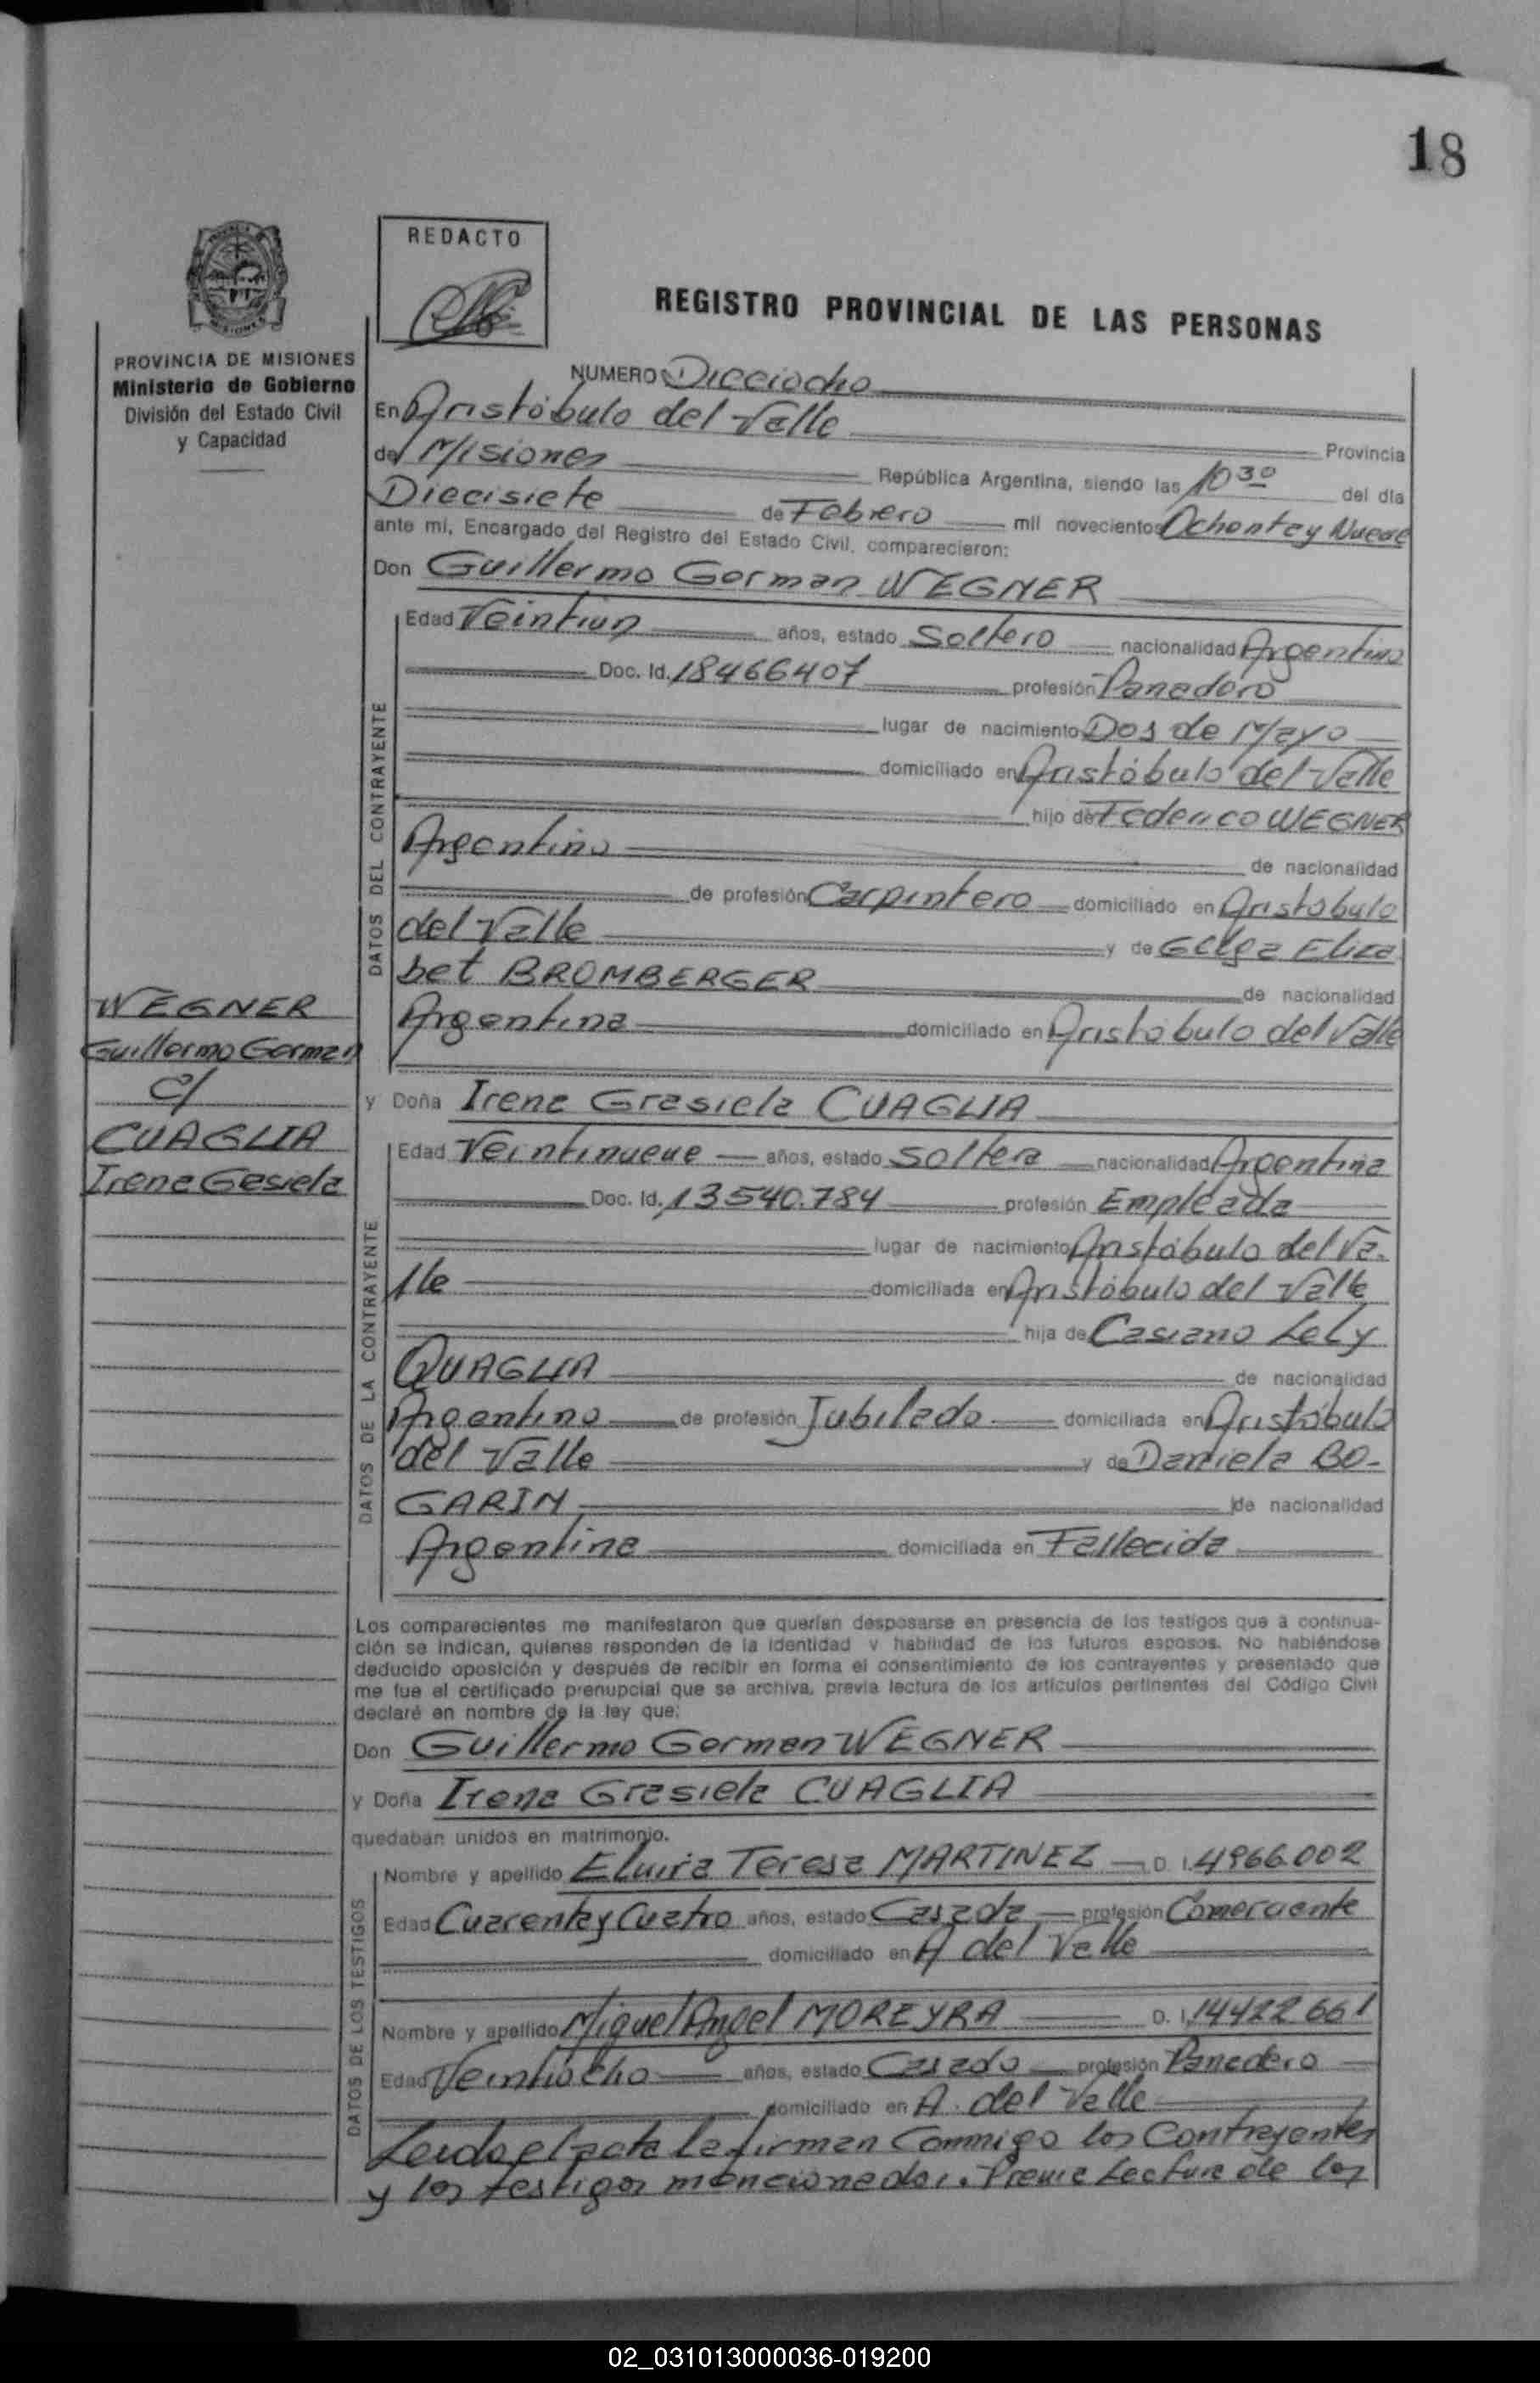 18
REDACTO
REGISTRO PROVINCIAL DE LAS PERSONAS
PROVINCIA DE MISIONES
Ministerio de Gobierno
División del Estado Civil
y Capacidad
NUMERO Dieciocho
En Aristóbulo del Valle Provincia
de Misiones República Argentina, siendo las 10 30 del día
Diecisiete de Febrero mil novecientos Ochenta y Nueve
ante mí, Encargado del Registro del Estado Civil, comparecieron:
Don Guillermo German WEGNER
DATOS DEL CONTRAYENTE
Edad Veintiun años, estado Soltero nacionalidad Argentino
Doc. Id. 18466407 profesión Panadero
lugar de nacimiento Dos de Mayo
domiciliado en Aristóbulo del Valle
hijo de Federico WEGNER
Argentino de nacionalidad
de profesión Carpintero domiciliado en Aristobulo
del Valle y de Eliza
bet BROMBERGER de nacionalidad
Argentina domiciliado en Aristobulo del Valle
WEGNER
Guillermo German
c/
CUAGLIA
Irene Gesiela
y Doña Irene Grasiela CUAGLIA
DATOS DE LA CONTRAYENTE
Edad Veintinueve años, estado Soltera nacionalidad Argentina
Doc. Id. 13540.784 profesión Empleada
lugar de nacimiento Aristóbulo del Va-
lle domiciliada en Aristóbulo del Valle
hija de Casiano Lely
QUAGLIA de nacionalidad
Argentino de profesión Jubilado domiciliada en Aristóbulo
del Valle y de Daniela BO-
GARIN de nacionalidad
Argentina domiciliada en Fallecida
Los comparecientes me manifestaron que querían desposarse en presencia de los testigos que a continua-
ción se indican, quienes responden de la identidad y habilidad de los futuros esposos. No habiéndose
deducido oposición y después de recibir en forma el consentimiento de los contrayentes y presentado que
me fue el certificado prenupcial que se archiva, previa lectura de los artículos pertinentes del Código Civil
declaré en nombre de la ley que:
Don Guillermo German WEGNER
y Doña Irene Grasiela CUAGLIA
quedaban unidos en matrimonio.
DATOS DE LOS TESTIGOS
Nombre y apellido Elvira Teresa MARTINEZ D. I. 4966.002
Edad Cuarenta y Cuatro años, estado Casada profesión Comerciante
domiciliado en A del Valle
Nombre y apellido Miguel Angel MOREYRA D. I. 14422661
Edad Veintiocho años, estado Casado profesión Panadero
domiciliado en A. del Valle
Leida el acta la firman Conmigo los Contrayentes
y los testigos mencionados. Previa Lectura de los
02_031013000036-019200